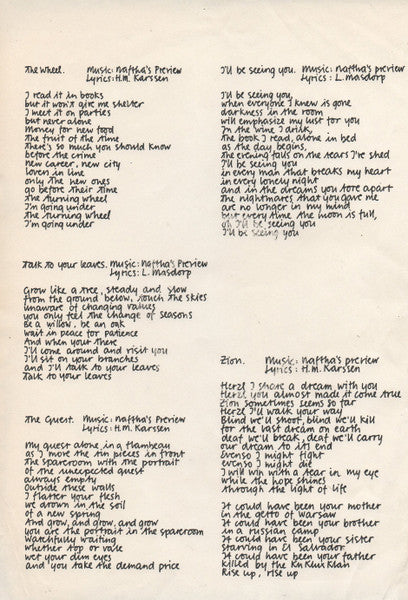 The Wheel. Music: Naftha's Preview
Lyrics: H.M. Karssen
I read it in books
but it won't give me shelter
I meet it on parties
but never alone
Money for new food
The fruit of the time
There's so much you should know
before the crime
new career, new city
loven in line
only the new ones
go before their time
the turning wheel
I'm going under
The turning wheel
I'm going under
Talk to your leaves. Music: Naftha's Preview
Lyrics: L. Masdorp
Grow like a tree, steady and slow
from the ground below, touch the skies
unaware of changing values
you only feel the change of seasons
Be a willow, be an oak
wait in peace for patience
And when your there
I'll come around and visit you
I'll sit on your branches
and I'll talk to your leaves
Talk to your leaves
The Guest. Music: Naftha's Preview
Lyrics: H.M. Karssen
My guest alone in a flambeau
as I move the tin pieces in front
the spareroom with the portrait
of the unexpected guest
always empty
Outside these walls
I flatter your flesh
we drown in the soil
of a new spring
And grow, and grow, and grow
you are the portrait in the spareroom
Watchfully waiting
whether top or vale
wet your dim eyes
and you take the demand price
I'll be seeing you. Music: Naftha's Preview
Lyrics: L. Masdorp
I'll be seeing you,
when everyone I knew is gone
darkness in the room
will emphasize my lust for you
I'm the wine I drink,
the book I read, alone in bed
as the day begins,
the evening falls on the tears I've shed
I'll be seeing you
in every man that breaks my heart
in every lonely night
and in the dreams you tore apart
the nightmares that you gave me
are no longer in my mind
but every time the moon is full,
oh I'll be seeing you
I'll be seeing you
Zion. Music: Naftha's preview
Lyrics: H.M. Karssen
Herzl I share a dream with you
Herzl you almost made it come true
Zion sometimes seems so far
Herzl I'll walk your way
Blind we'll shoot, blind we'll kill
for the last dream on earth
deaf we'll break, deaf we'll carry
our dream to its end
Evenso I might fight
evenso I might die
I will win with a tear in my eye
while the hope shines
through the light of life
It could have been your mother
in the getto of Warsaw
It could have been your brother
in a russian camp
It could have been your sister
starving in El Salvador
It could have been your father
killed by the Ku Klux Klan
Rise up, rise up